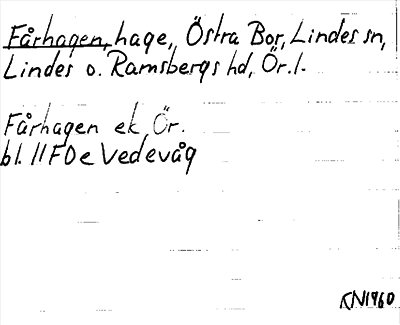 Fårhagen, hage, Östra Bor, Lindes sn,
Lindes o. Ramsbergs hd, Ör. l.
Fårhagen ek Ör.
bl. 11F0e Vedevåg
KN1960